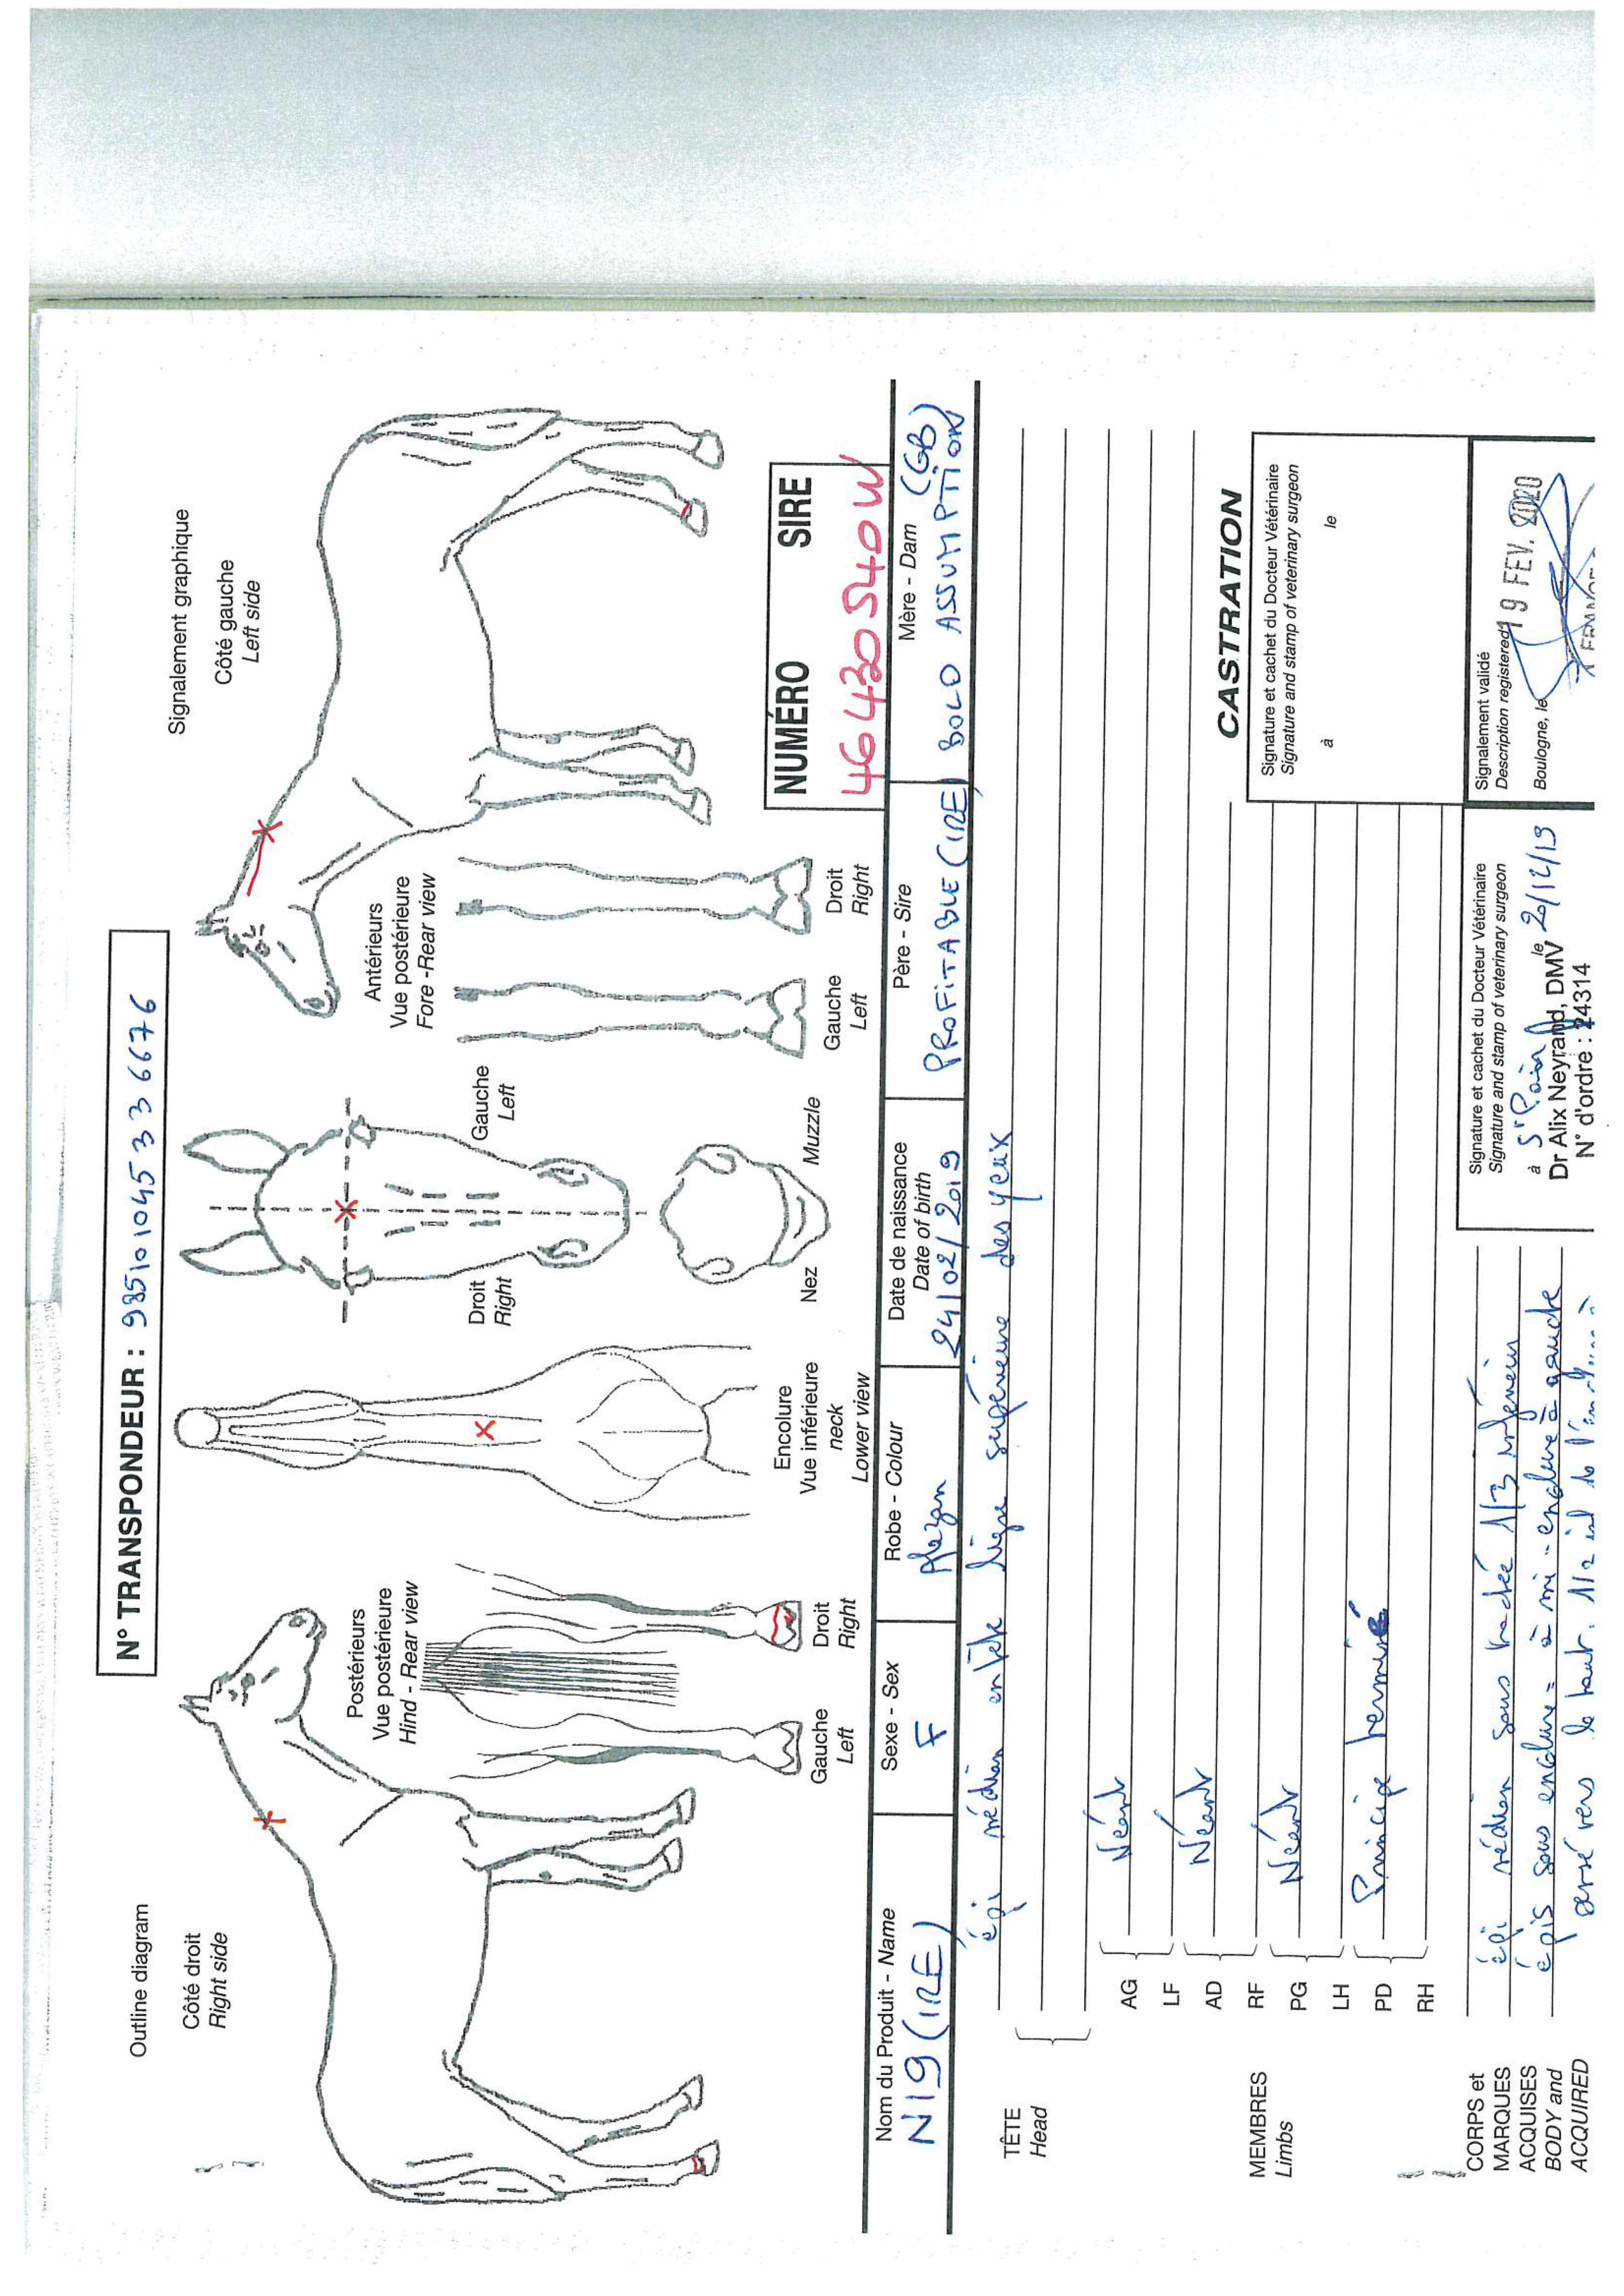 N° TRANSPONDEUR : 985101045336676
Outline diagram
Signalement graphique
Côté droit
Right side
Côté gauche
Left side
Postérieurs
Vue postérieure
Hind - Rear view
Antérieurs
Vue postérieure
Fore -Rear view
Gauche
Left
Droit
Right
Encolure
Vue inférieure
neck
Lower view
Droit
Right
Gauche
Left
Nez
Muzzle
Gauche
Left
Droit
Right
NUMÉRO SIRE
46430540W
Nom du Produit - Name
N19 (IRE)
Sexe - Sex
F
Robe - Colour
Alezan
Date de naissance
Date of birth
24/02/2019
Père - Sire
PROFITABLE (IRE)
Mère - Dam
BOLD ASSUMPTION (GB)
TÊTE
Head
épi médian en tête ligne supérieure des yeux
MEMBRES
Limbs
AG
LF
Néant
AD
RF
Néant
PG
LH
Néant
PD
RH
Principe herminé
CASTRATION
Signature et cachet du Docteur Vétérinaire
Signature and stamp of veterinary surgeon
à le
CORPS et
MARQUES
ACQUISES
BODY and
ACQUIRED
épi médian sous trachée 1/3 inférieur
épis sous encolure = à mi-encolure à gauche
versé vers le haut.
Signature et cachet du Docteur Vétérinaire
Signature and stamp of veterinary surgeon
à le 20/12/19
Dr Alix Neyrand, DMV
N° d'ordre : 24314
Signalement validé
Description registered
19 FEV. 2020
Boulogne, le